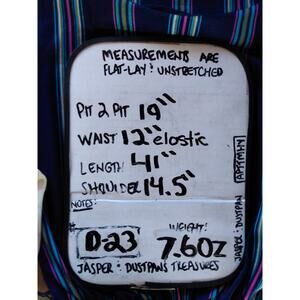 MEASUREMENTS ARE
FLAT-LAY! UNSTRETCHED
PIT 2 PIT 19"
WAIST 12" elastic
LENGTH 41"
SHOULDER 14.5"
NOTES:
D-23
WEIGHT!
7.6OZ
JASPER: DUSTPAWS TREASURES
JASPER: DUSTPAW